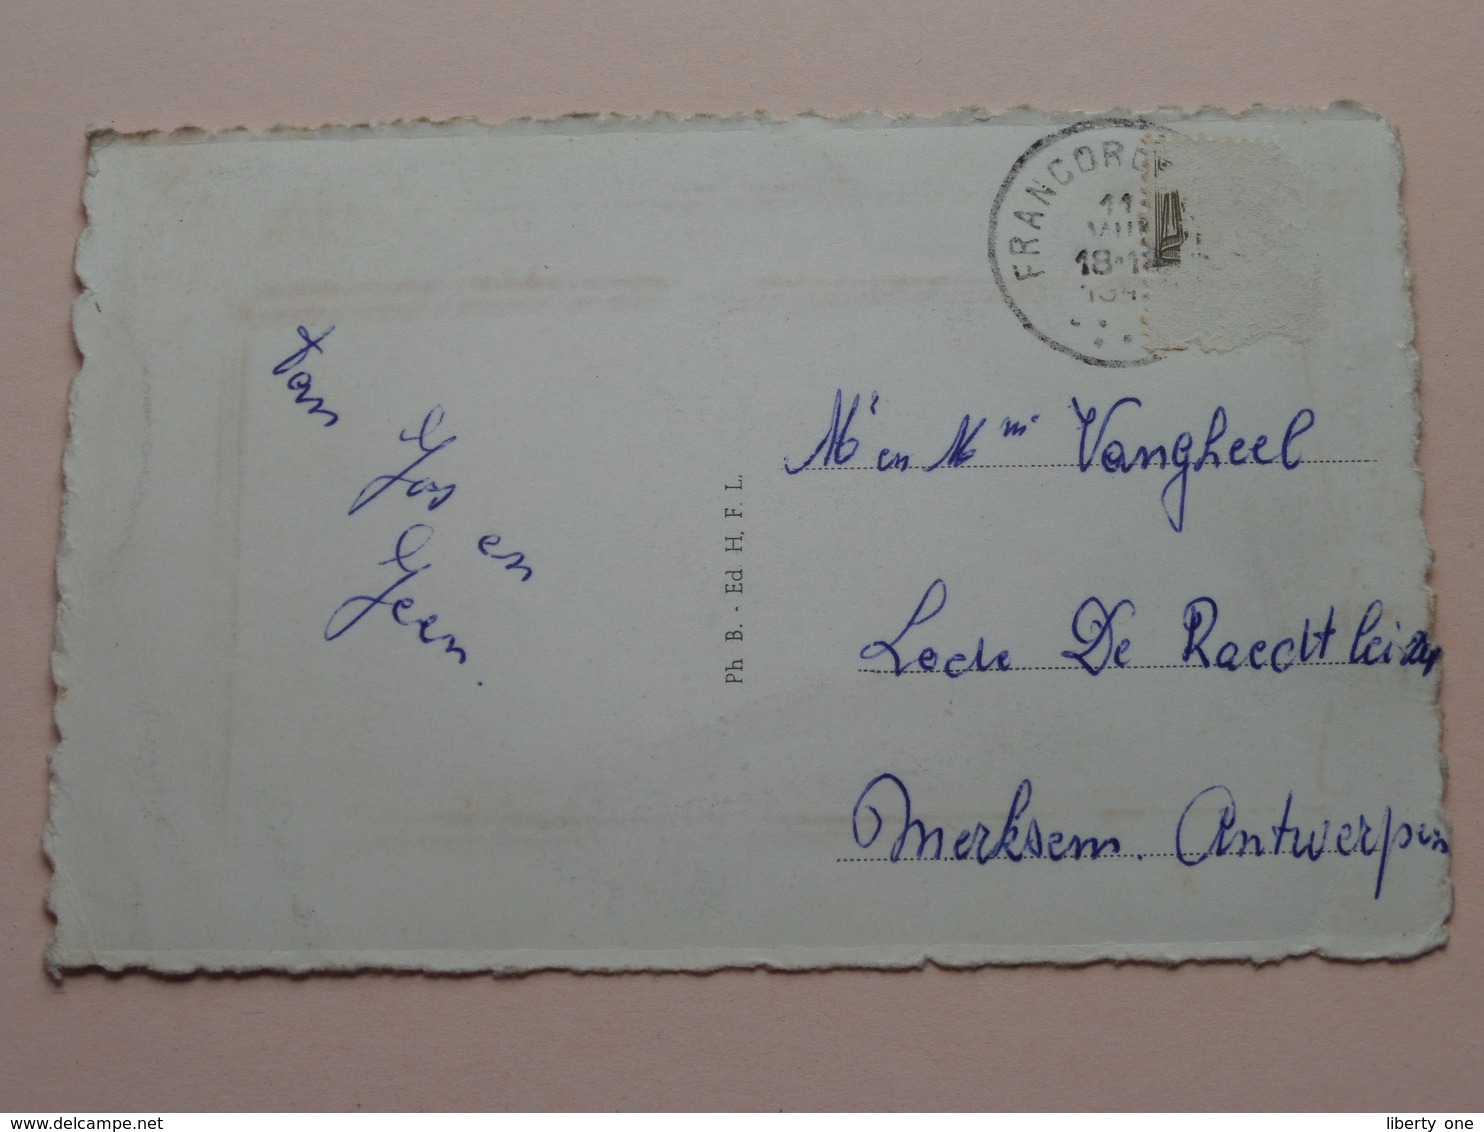 FRANCORC
11
VIII
18-1
194
Van
Jos
en
Geen.
Ph B. - Ed H. F. L.
Mr en Mme Vangheel
Lode De Raedtlei
Merksem. Antwerpen
www.delcampe.net
liberty one